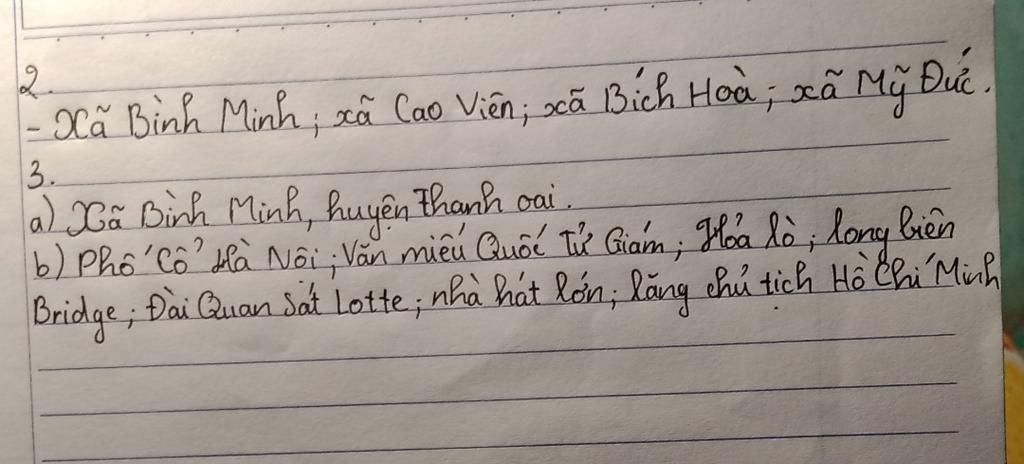 2.
- Xã Bình Minh; xã Cao Viên; xã Bích Hoà; xã Mỹ Đức.
3.
a) Xã Bình Minh, huyện Thanh oai.
b) Phố Cổ Hà Nội; Văn miếu Quốc Tử Giám; Hỏa lò; long biên
Bridge; Đài Quan Sát Lotte; nhà hát lớn; lăng chủ tịch Hồ Chí Minh